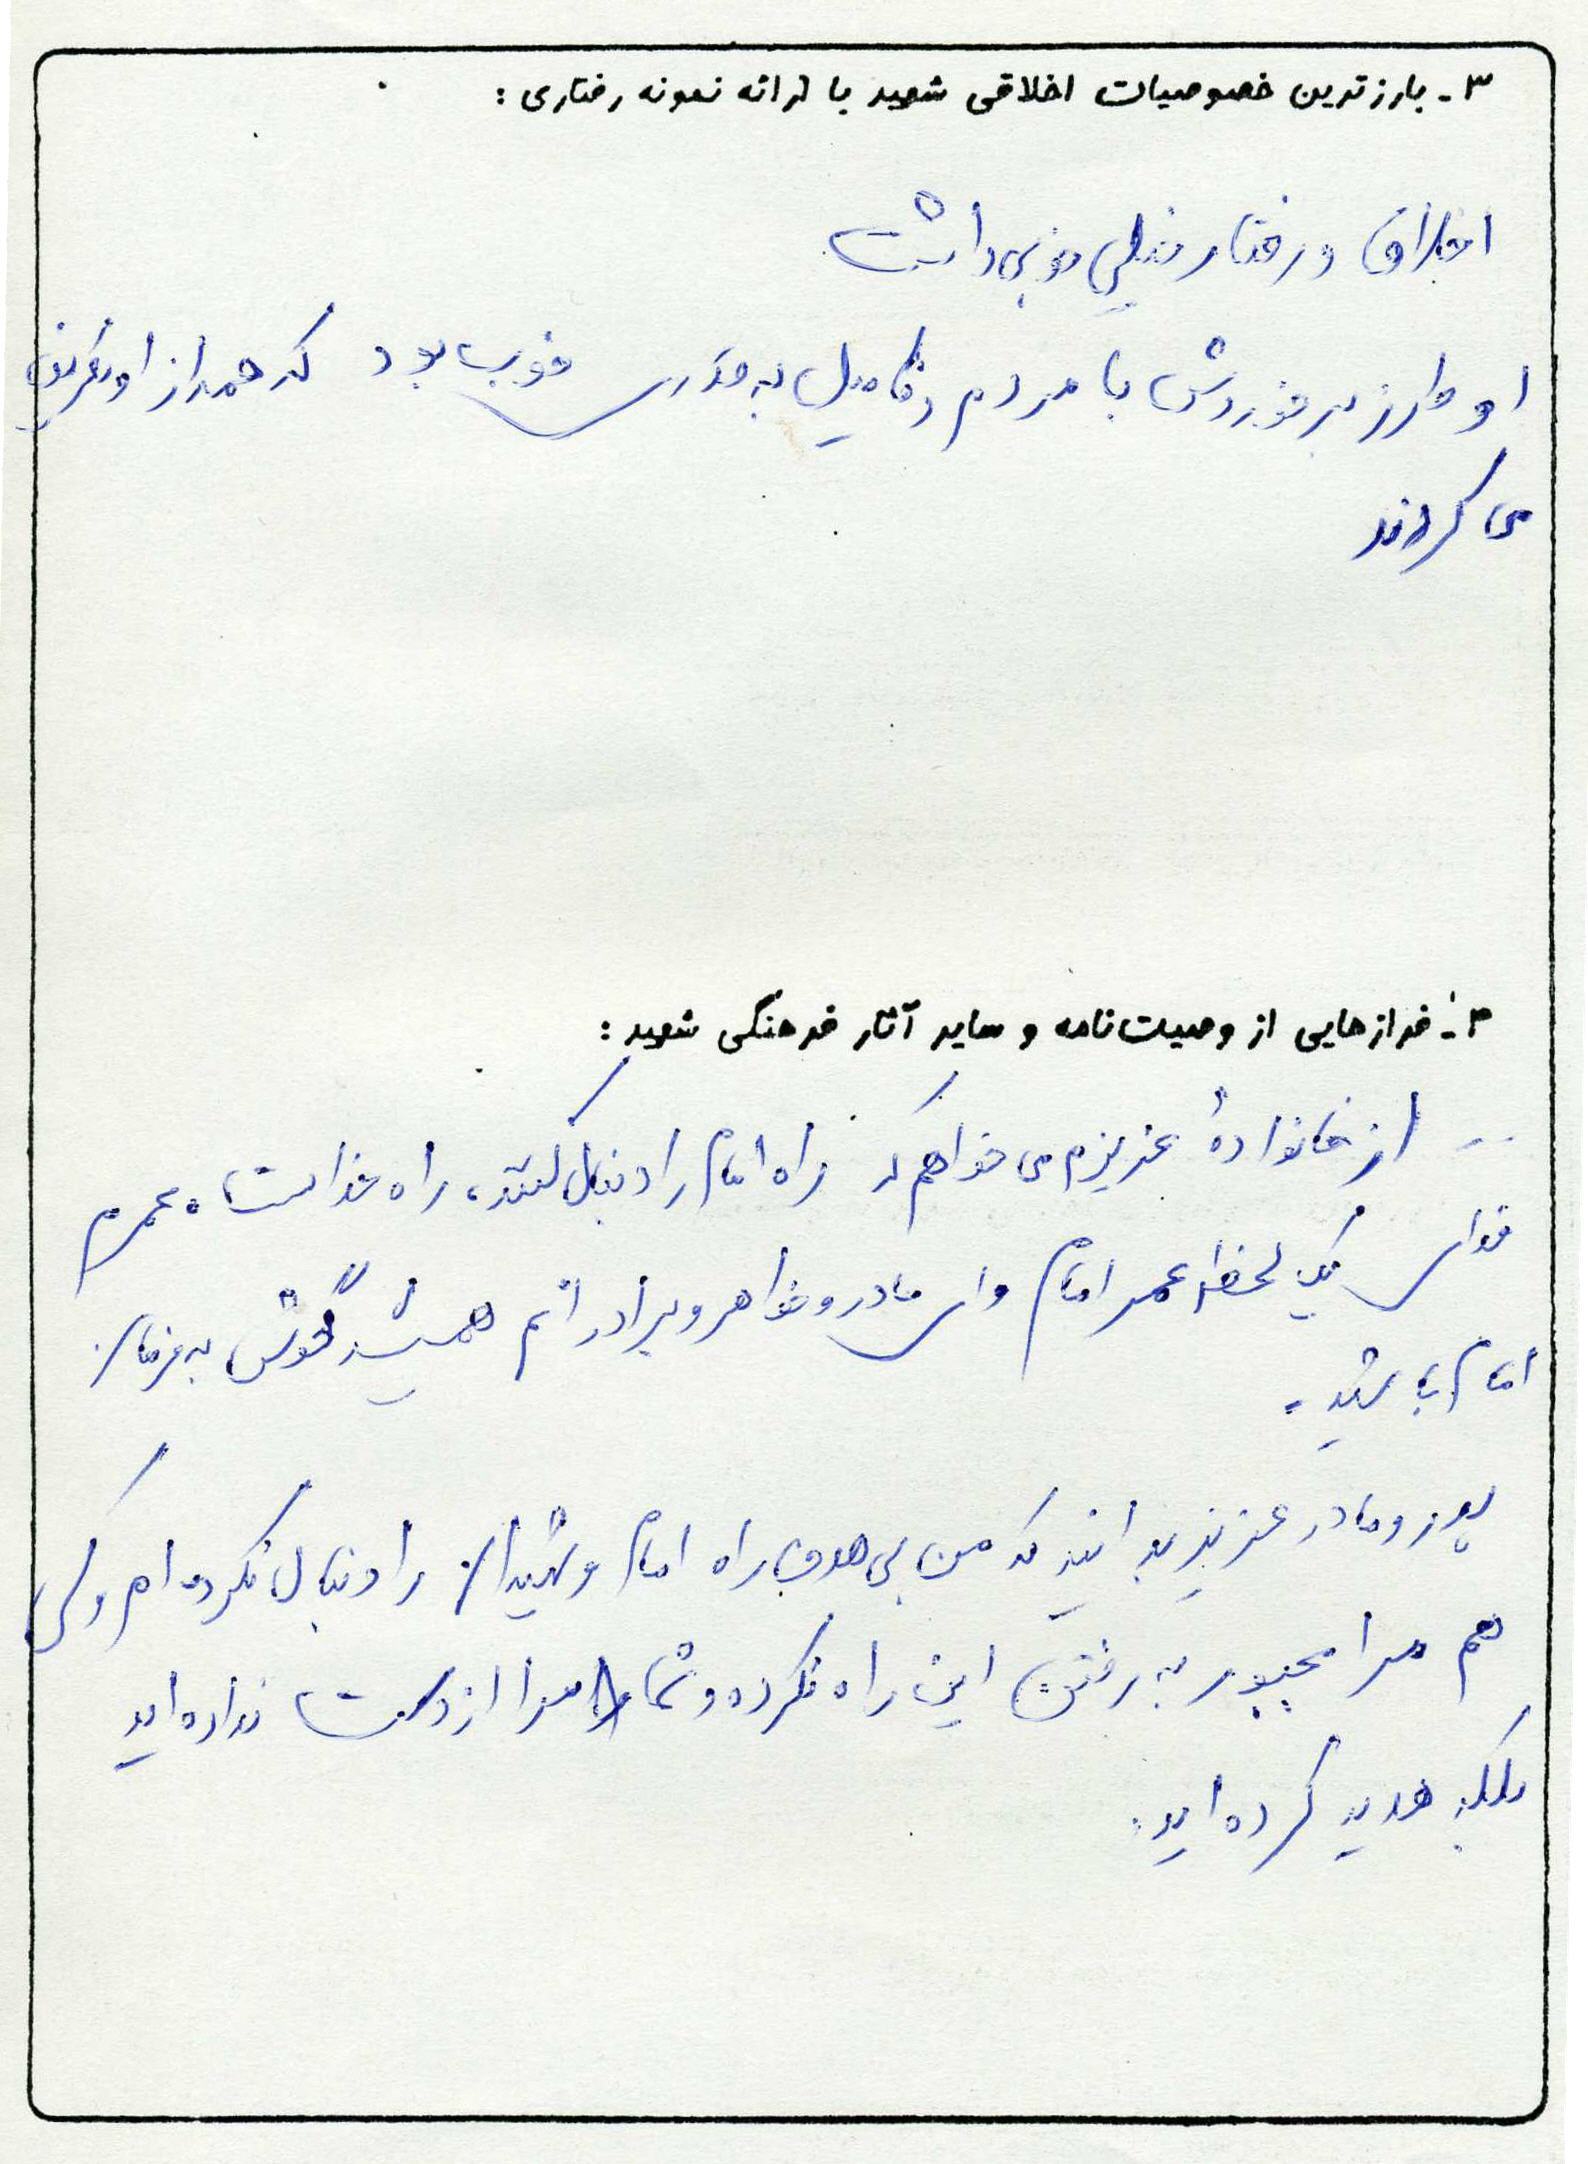 ۳- بارزترین خصوصیات اخلاقی شهید با ارائه نمونه رفتاری :
اخلاق و رفتار خیلی خوبی داشت
او طرز برخوردش با مردم و فامیل به قدری خوب بود که همه از او تعریف
می کردند
۴- فرازهایی از وصیت‌نامه و سایر آثار فرهنگی شهید :
... از خانوادهٔ عزیزم می خواهم که راه امام را دنبال کنند، راه خداست . عمرم
فدای یک لحظه عمر امام وای مادر و خواهر و برادرانم همیشه گوش به فرمان
امام باشید .
پدر و مادر عزیز بدانید که من بی هدف راه امام و شهیدان را دنبال نکرده ام و کسی
هم مرا مجبور به رفتن این راه نکرده و شما مرا از دست نداده اید
بلکه هدیه کرده اید.